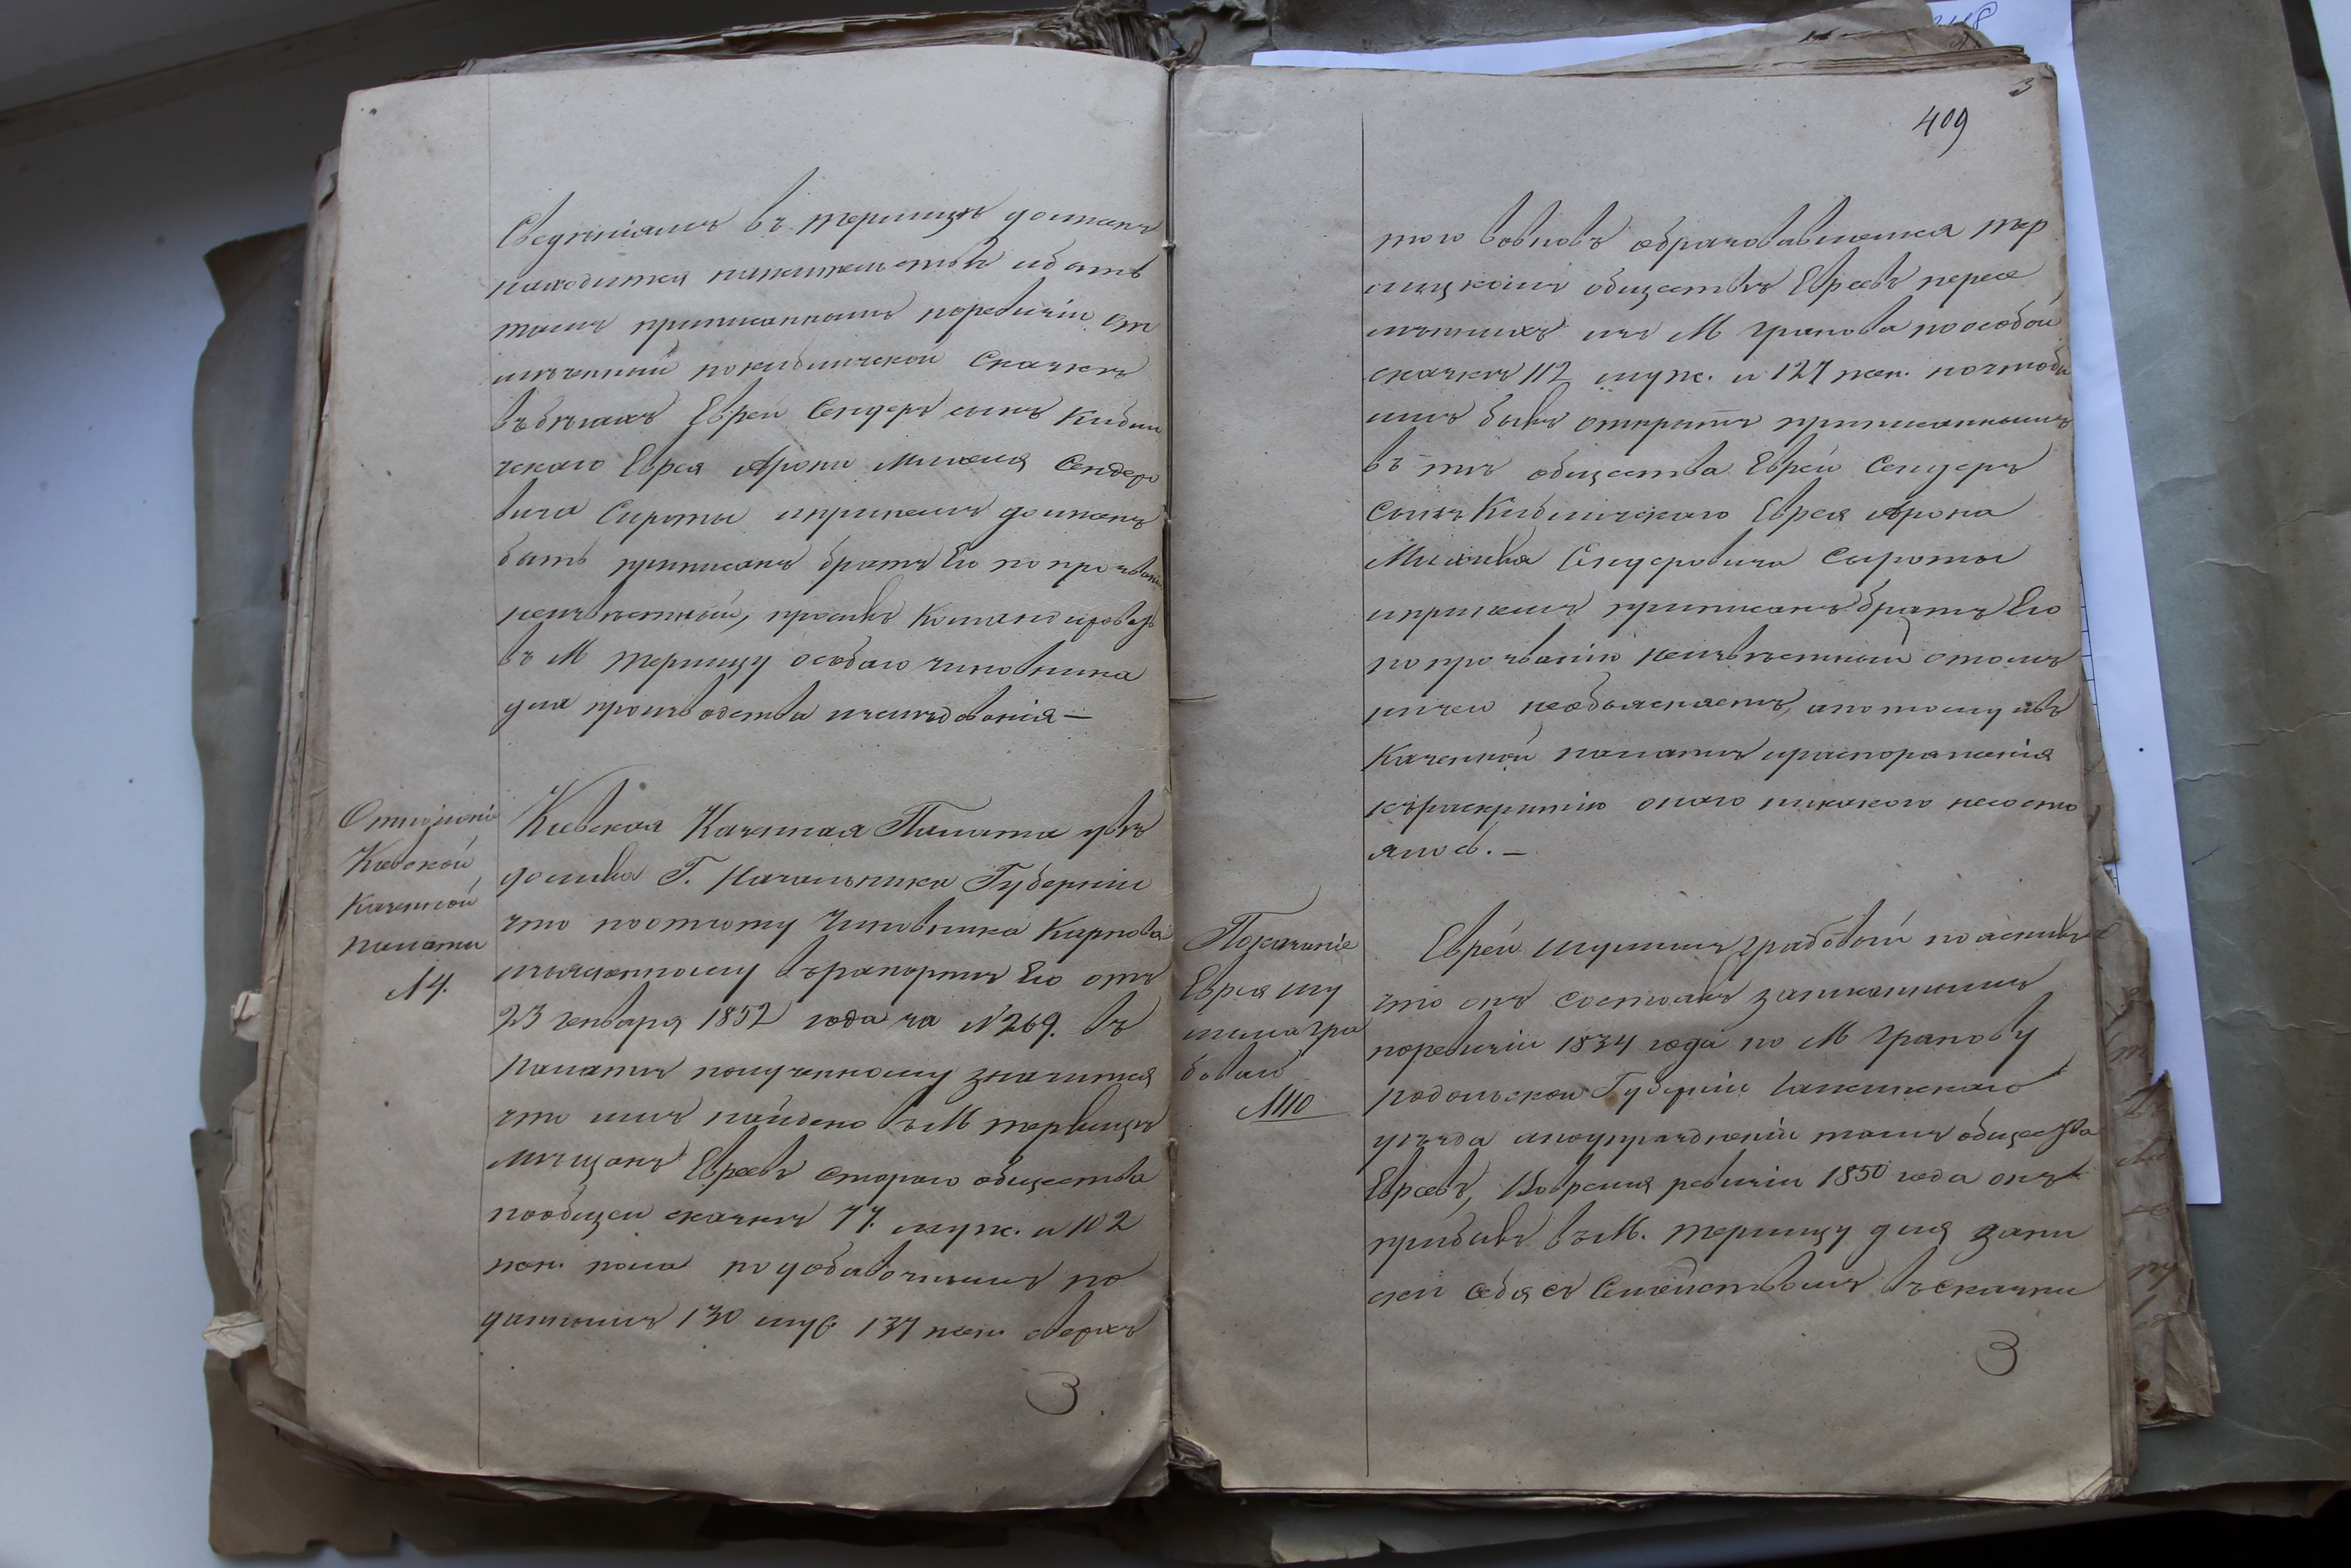 Сведѣніямъ въ терлицѣ должен
находится на жительствѣ и быть
тамъ приписаннымъ по ревизіи от
мѣченный по кибличской Сказкѣ
въ бѣгахъ Еврей Сендеръ сынъ Кибли
чскаго Еврея Арона Михеля Сендеро
вича Сироты и при немъ долженъ
быть приписанъ братъ Его по прозван
неизвѣстный, просилъ Командировать
въ М терлицу особаго чиновника
для производства изслѣдованія —
Отношеніе
Кіевской
Казенной
палаты
№ 4.
Кіевская Казенная Палата увѣ
домила Г. Начальника Губерніи
что по отзыву Чиновника Карпова
изъясненному въ рапортѣ Его отъ
23 генваря 1852 года за № 269. въ
Палатѣ полученному значится
что имъ найдено въ М терлицѣ
мѣщанъ Евреевъ стараго общества
по общей сказкѣ 77. муж. и 102
жен. пола по добавочнымъ по
даннымъ 130 муж 137 жен. сверхъ
3
3
409
того вновь образовавшемся тер
лицкомъ обществѣ Евреевъ пересе
лѣнныхъ изъ М Гранова по особой
сказкѣ 112 муж. и 127 жен. но чтобы
имъ былъ открытъ приписаннымъ
въ тѣ общества Еврей Сендеръ
Сынъ Кибличскаго Еврея Арона
Михеля Сендеровича Сироты
и при немъ приписанъ братъ Его
по прозванію неизвѣстный о томъ
ничего необъясняетъ, а по тому и въ
Казенной палатѣ и распоряженія
къ раскрытію онаго никакого несосто
ялось. —
Показаніе
Еврея шу
лима гра
боваго
№ 10
Еврей шулимъ грабовой пояснилъ
что онъ состоялъ записаннымъ
по ревизіи 1834 года по М Гранову
подольской Губерніи Гайсинскаго
уѣзда а по упраздненіи тамъ общества
Евреевъ, Вовремя ревизіи 1850 года онъ
прибылъ въ М. терлицу для запи
ски себя съ Семействомъ въ сказки
3